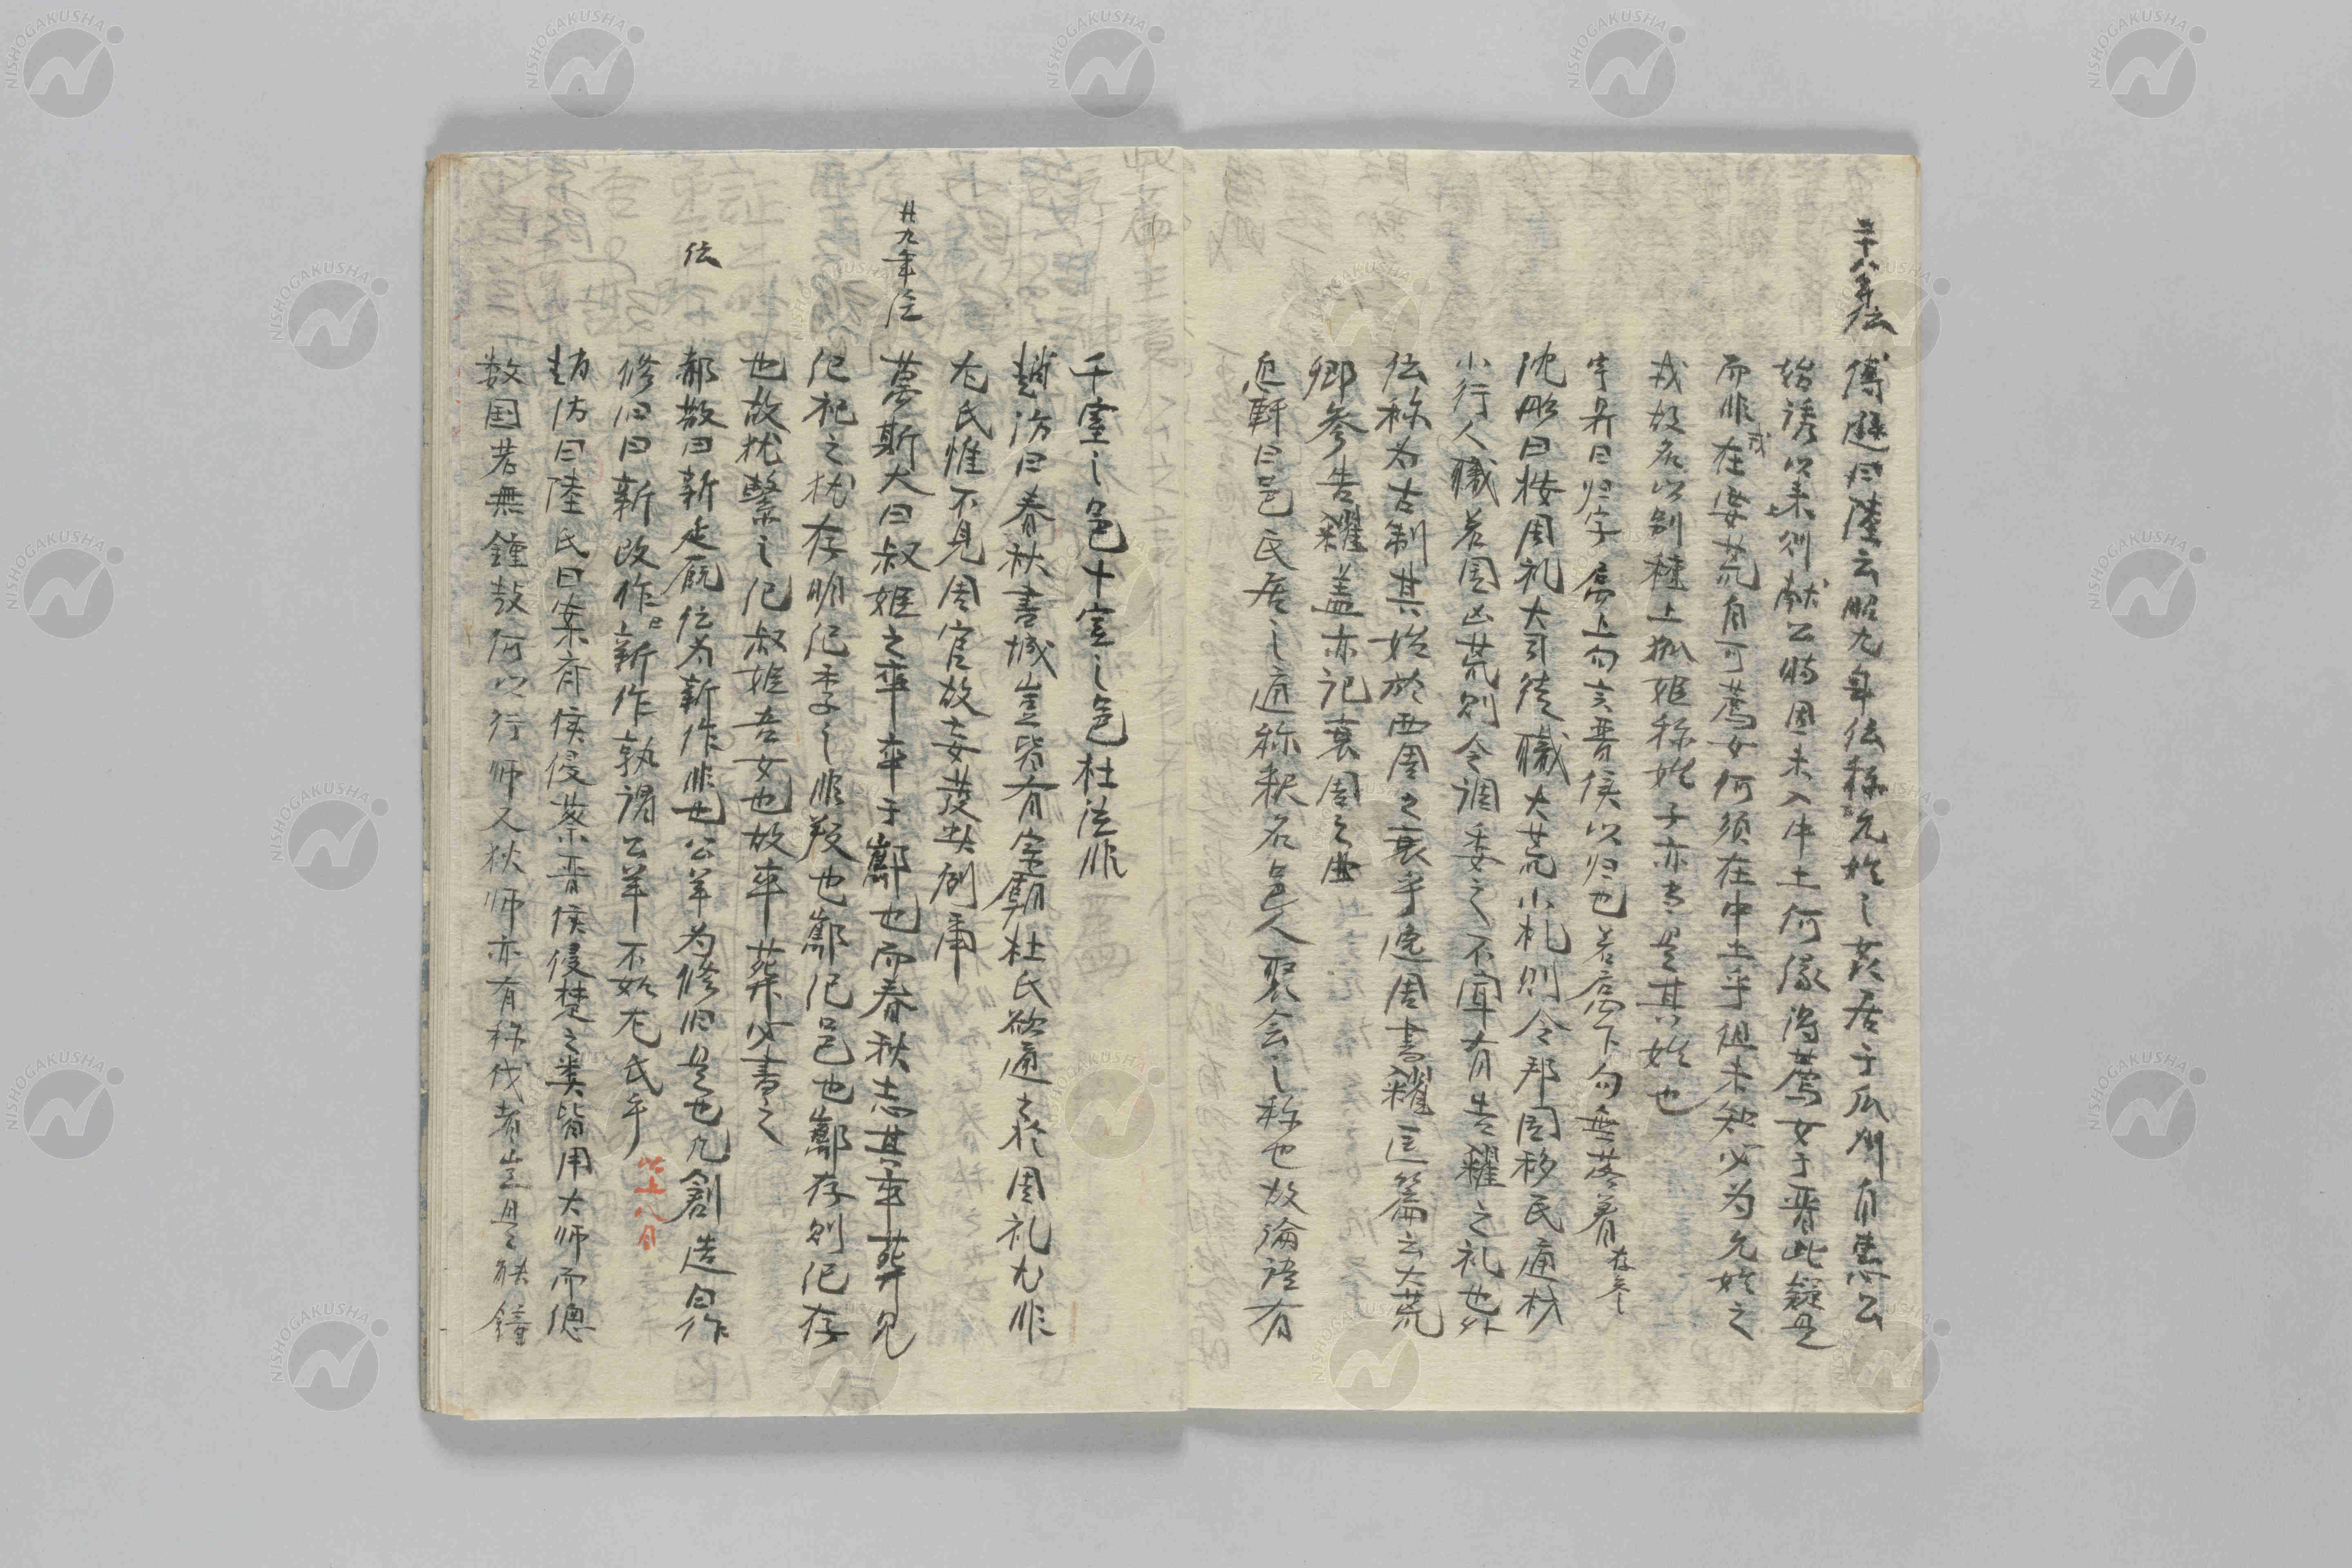 二十八年伝
傅遜曰陸云昭九年伝称允姓之姦居于瓜州自惠公
始誘以来則献公時固未入中土何縁得驪女于晋此疑是
而非在戎女荒自可驪女何須在中土乎祖未知必为允姓之
戎故名以别種上拠姫称姓子亦当是其姓也
字
曰归字属上句言晋侯以归也若属下句無落着
沈彤曰按周礼大司徒職大荒小札則令邦国移民通材
小行人職若国凶荒則令調委之不闻有告糴之礼也外
伝称为古制其始於西周之衰乎逸周書糴匡篇云大荒
卿参告糴盖亦記衰周之典
曰邑民居之通称釈名邑人聚会之称也故論語有
千室之邑十室之邑杜注非
趙汸曰春秋書城豈皆有宗廟杜氏欲通於周礼尤非
左氏惟不見周官故妄発此例
廿九年注
萬斯大曰叔姫之卒卒于酅也而春秋志其卒葬見
紀祀之猶存明紀季之非叛也酅紀邑也酅存則紀存
也故猶繫之紀叔姫吾女也故卒葬必書之
伝
郝敬曰新延厩伝为新作非也公羊为修旧是也凡創造曰作
修旧曰新改作曰新作孰謂公羊不如左氏乎
以上八月
趙汸曰陸氏曰案斉侯侵蔡晋侯侵楚之类皆用大师而
数国若無鍾鼓何以行师又狄师亦有称伐者豈是能鐘